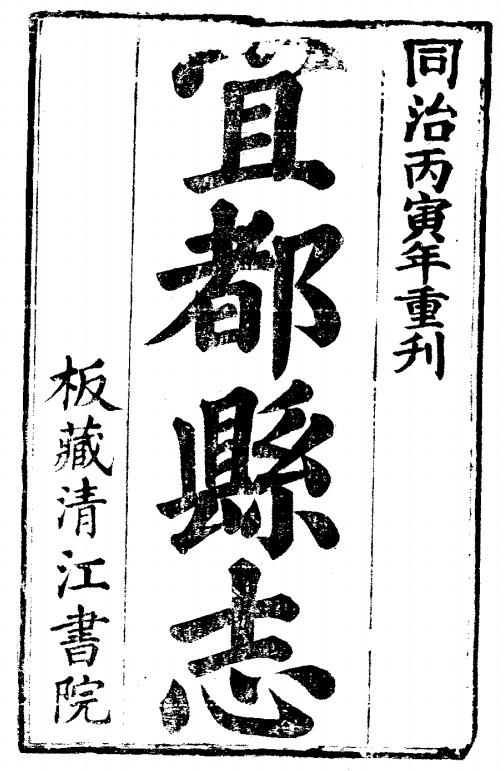 同治丙寅年重刋
宜都縣志
板藏清江書院